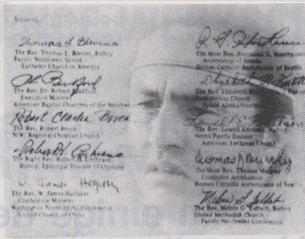 Sincerely,
Thomas L. Blevins
The Rev. Thomas L. Blevins, Bishop
Pacific Northwest Synod –
Lutheran Church in America
The Rev. Dr. Robert Bradford
Executive Minister
American Baptist Churches of the Northwest
Robert Clarke Brock
The Rev. Robert Brock
N.W. Regional Christian Church
Robert H. Cochrane
The Right Rev. Robert H. Cochrane,
Bishop, Episcopal Diocese of Olympia
W. James Halfaker
The Rev. W. James Halfaker
Conference Minister
Washington North Idaho Conference
United Church of Christ
The Most Rev. Raymond G. Hunthausen
of Seattle
Roman Catholic Archdiocese of Seattle
The Rev. Elizabeth
Presbyterian Church
Synod Alaska-Northwest
The Rev. Lowell Knutson, Bishop
North Pacific District
American Lutheran Church
Thomas Murphy
The Most Rev. Thomas Murphy
Coadjutor Archbishop
Roman Catholic Archdiocese of Seattle
Melvin G. Talbert
The Rev. Melvin G. Talbert, Bishop
United Methodist Church –
Pacific Northwest Conference